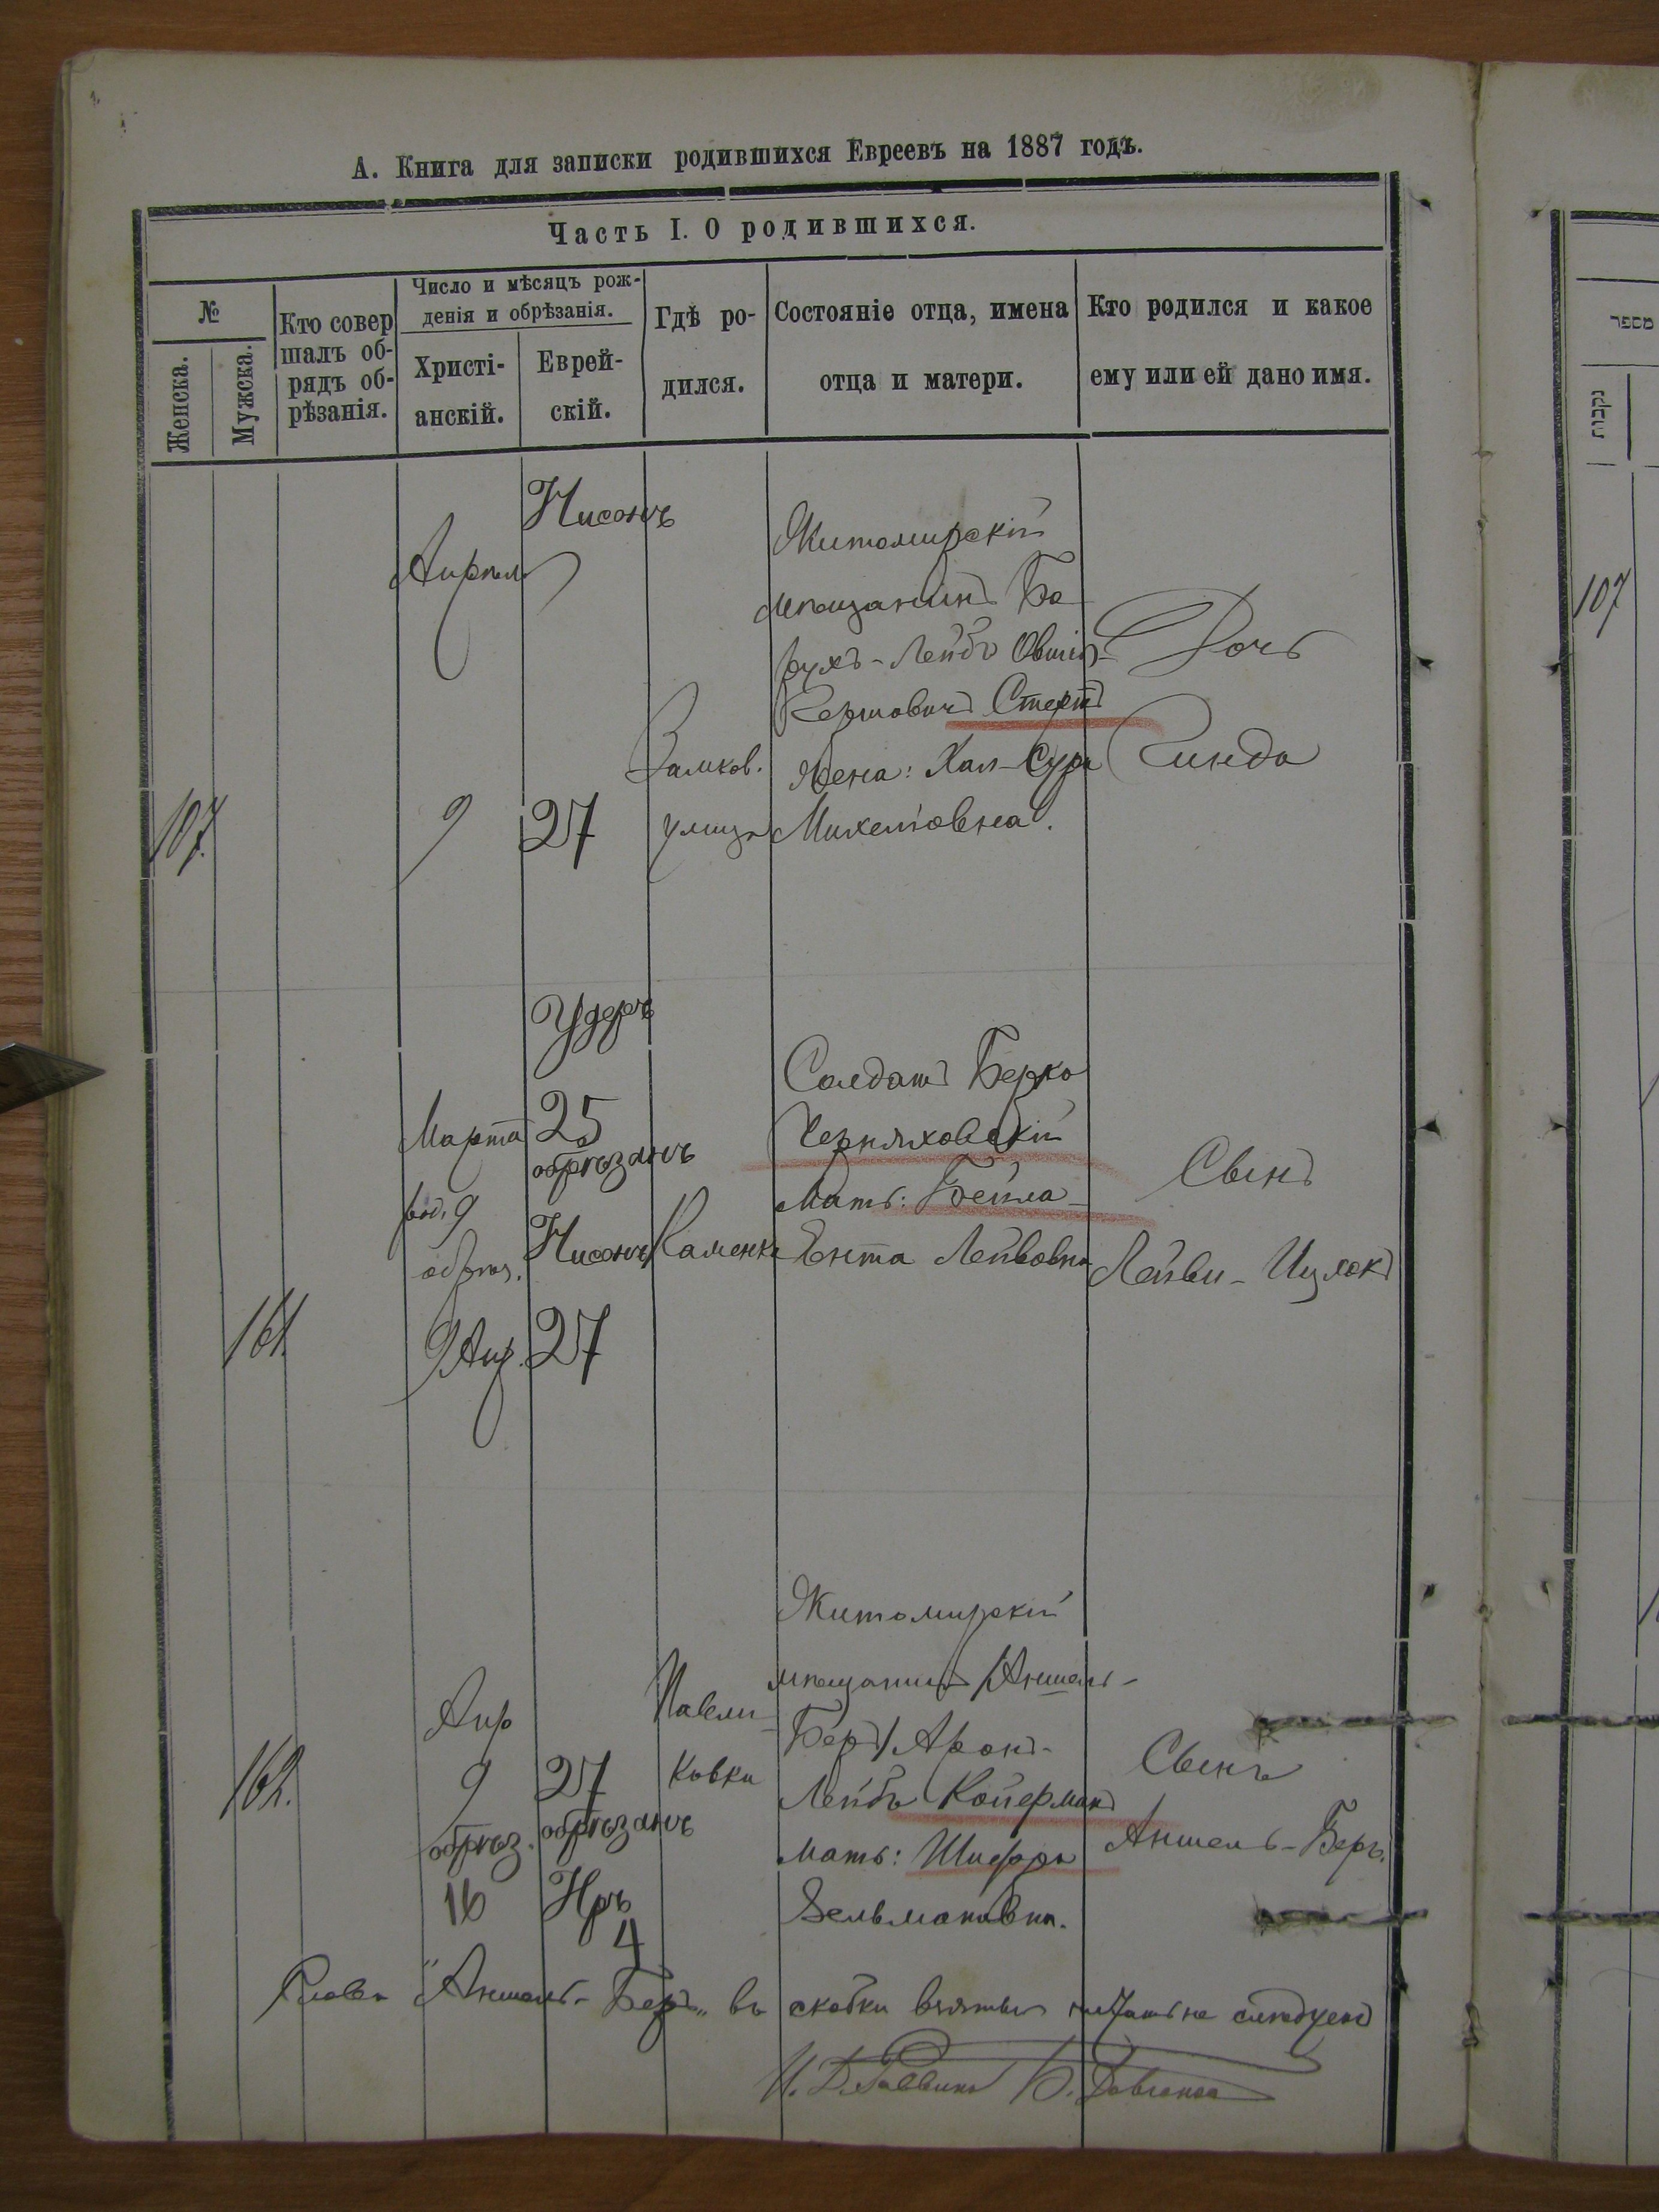 А. Книга для записки родившихся Евреевъ на 1887 годъ.
Часть I. О родившихся.
№
Женска.
Мужска.
Кто совер
шалъ об-
рядъ об-
рѣзанія.
Число и мѣсяцъ рож-
денія и обрѣзанія.
Христі-
анскій.
Еврей-
скій.
Гдѣ ро-
дился.
Состояніе отца, имена
отца и матери.
Кто родился и какое
ему или ей дано имя.
107.
Апрѣль
9
Нисонъ
27
Замков.
улица
Житомирскій
мѣщанинъ Ба
рухъ-Лейбъ Овшій-
Гершовичъ Стертъ
Жена: Хая-Сура
Михелiовна.
Дочь
Гинда
161.
Марта
род. 9
обрѣз.
9 Апр.
Удеръ
25
обрѣзанъ
Нисонъ
27
Каменка
Солдатъ Берко
Черняховскій
Мать: Бейла-
Ента Лейбовна
Сынъ
Лейви-Ицхокъ
162.
Апр
9
обрѣз.
16
27
обрѣзанъ
Иръ
4
Павли-
ковка
Житомирскій
мѣщанинъ /Аншель-
Беръ/ Аронъ-
Лейбъ Койерманъ
Мать: Шифра
Зельмановна.
Сынъ
Аншель-Беръ.
Слова "Аншель-Беръ" въ скобки взятыя читать не слѣдуетъ
И. Д. Раввина
107
מספר
נקבות